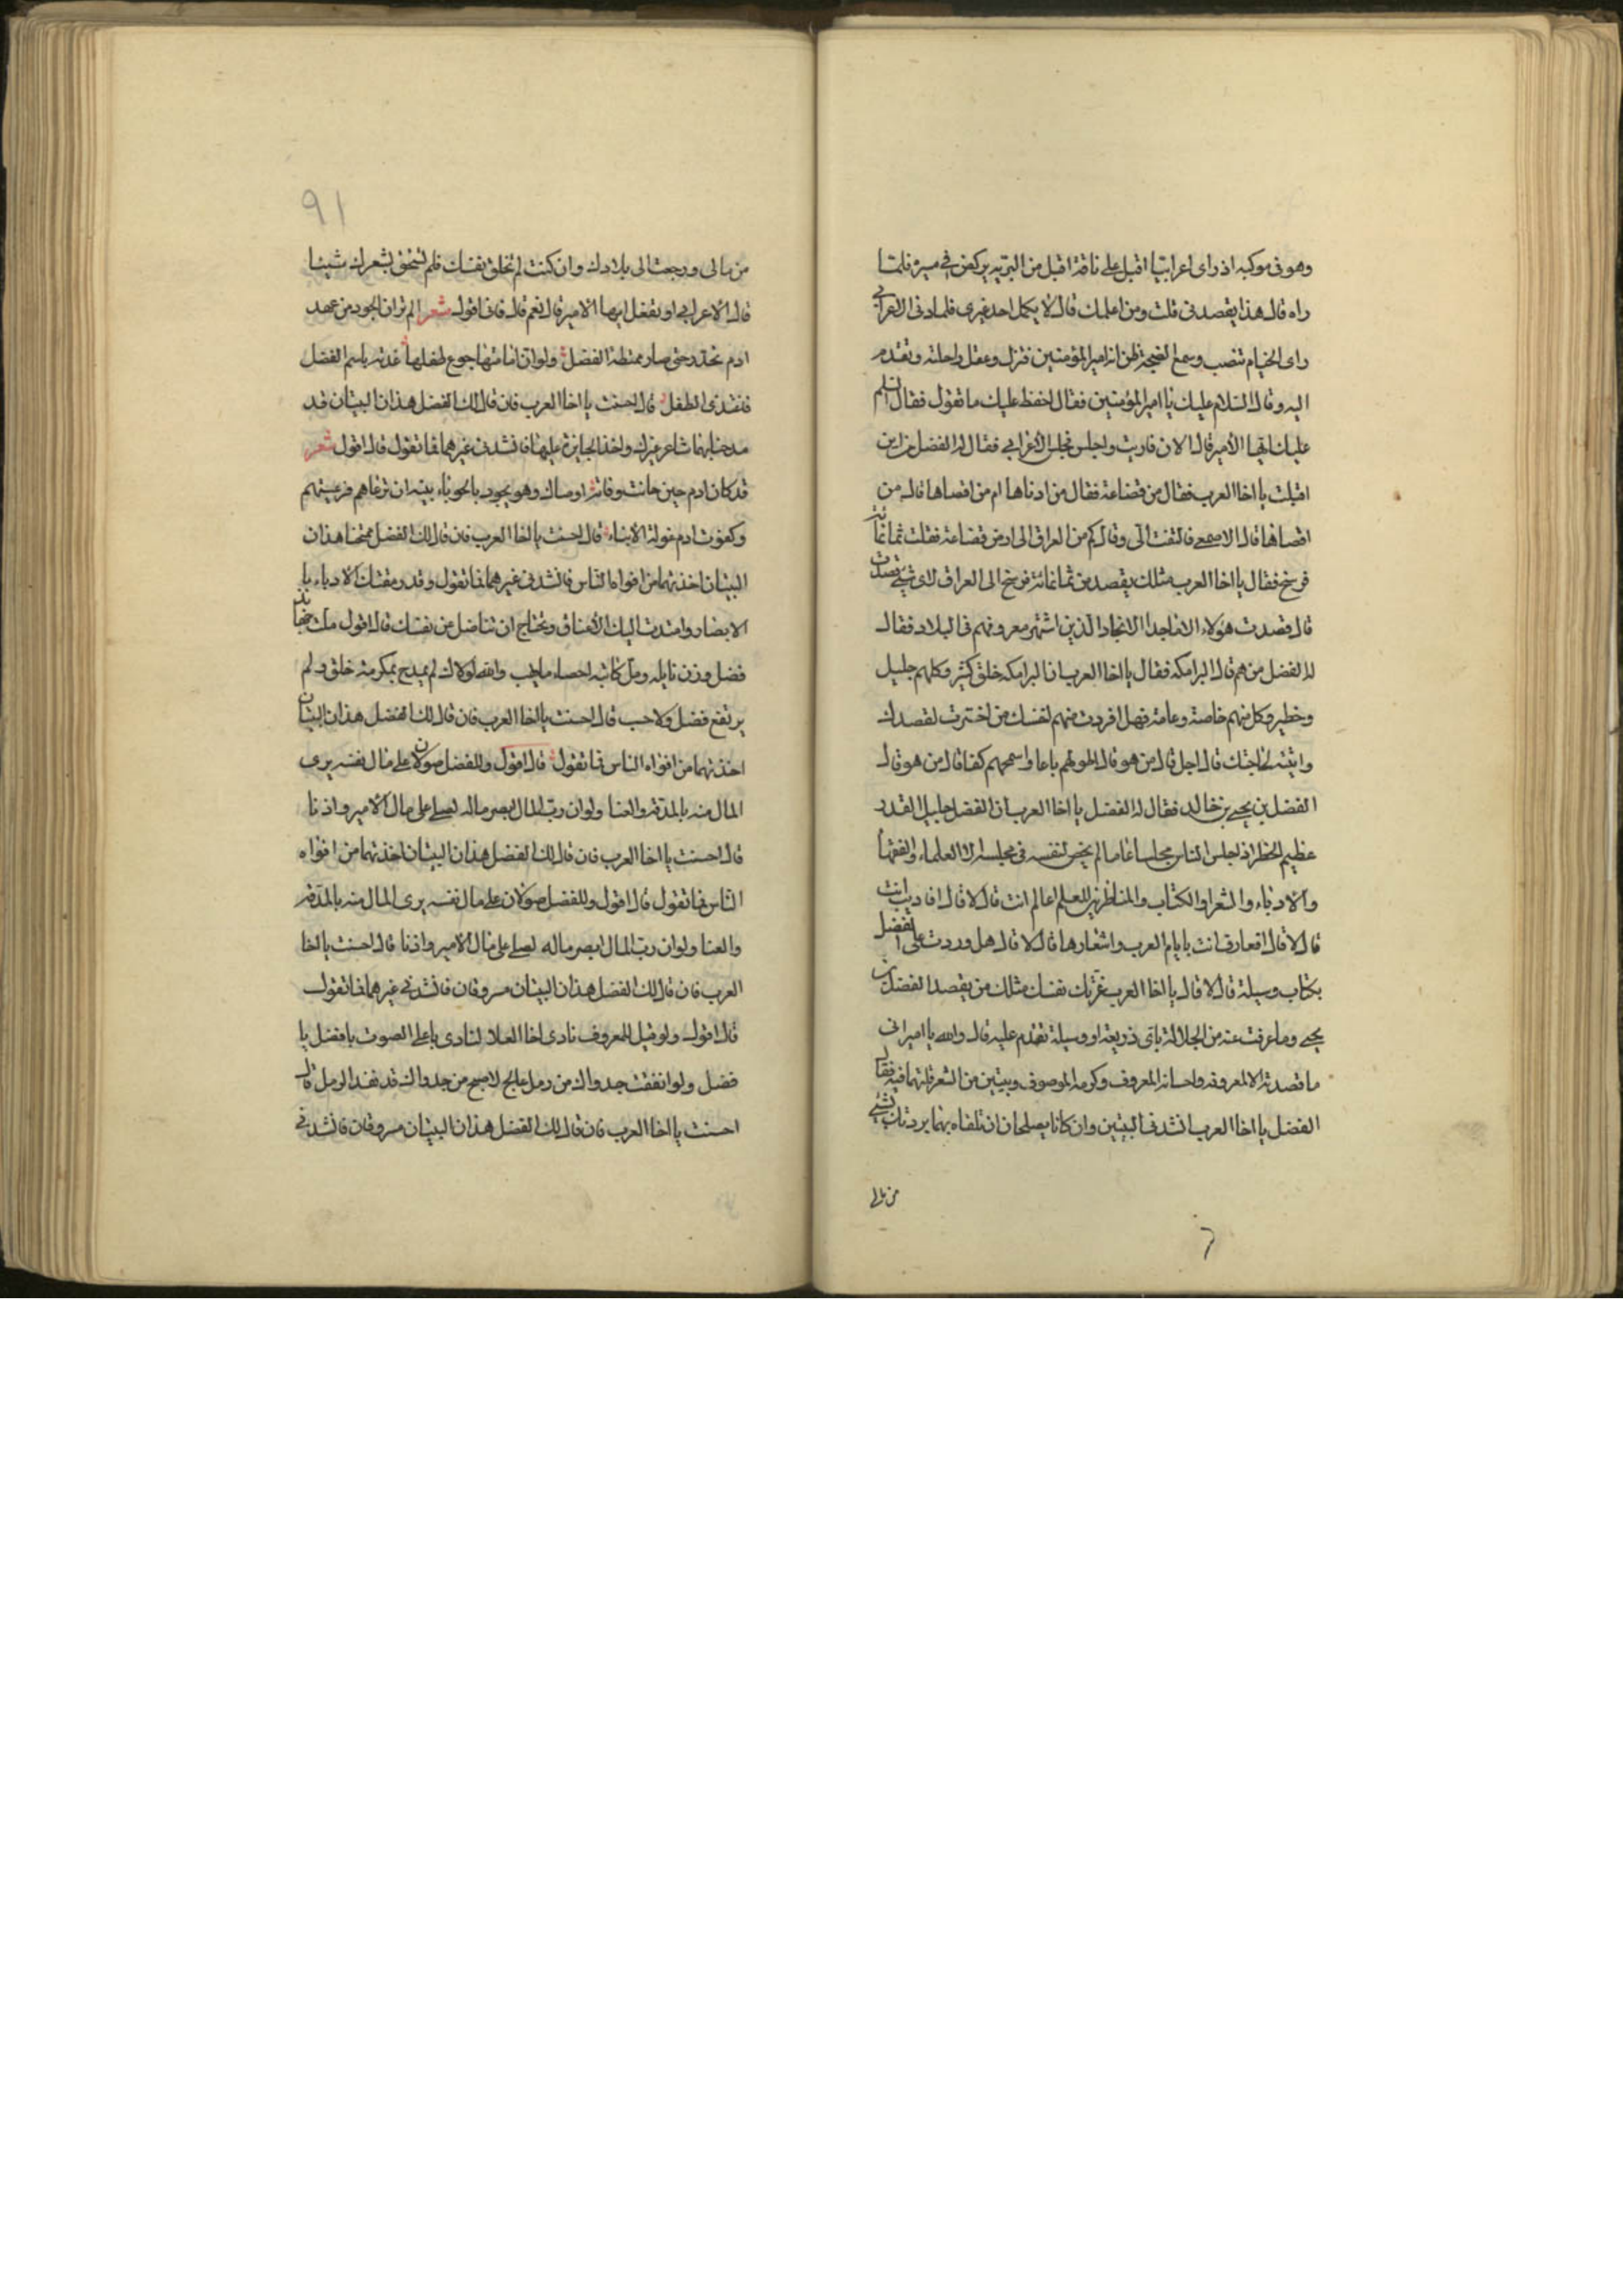 وهو فى موكبه اذ راى اعرابيا اقبل على ناقة اقبل من البريه يركض فى سيره فلما
راه قال هذا يقصدنى قلت ومن اعلمك قال لا يكلمه احد غيرى فلما دنى الاعرابى
راى الخيام تنصب وسمع الضجة ظن انه امير المؤمنين فنزل وعقل راحلته وتقدم
اليه وقال السلام عليك يا امير المؤمنين فقال اخفظ عليك ما تقول فقال السلم
عليك ايها الأمير قال الان قاربت واجلس فجلس الأعرابى فقال له الفضل من اين
اقبلت يا اخا العرب فقال من قضاعة فقال من ادناها ام من اقصاها قال من
اقصاها قال الاصمعى فالتفت الى وقال كم من العراق الى ارض قضاعة فقلت ثمانمائة
فرسخ فقال يا اخا العرب مثلك يقصد من ثمانمائة فرسخ الى العراق لاى شيئ قصدت
قال قصدت هؤلاء الاماجد الانجاد الذين اشتهر معروفهم فى البلاد فقال
له الفضل من هم قال البرامكه فقال يا اخا العرب ان البرامكه خلق كثير وكلهم جليل
وخطير وكل منهم خاصة وعامة فهل افردت منهم لنفسك من اخترت لقصدك
واتيته لحاجتك قال اجل قال من هو قال اطولهم باعا واسمحهم كفا قال من هو قال
الفضل بن يحيى بن خالد فقال له الفضل يا اخا العرب ان الفضل جليل القدر
عظيم الخطر اذ اجلس للناس مجلسا عاما لم يحضر لنفسه فى مجلسه الا العلماء والفقها
والادباء والشعرا والكتاب والمناظرين للعلم اعالم انت قال لا قال افاديب انت
قال لا قال افعارف انت بايام العرب واشعارها قال لا قال هل وردت على الفضل
بكتاب وسيلة قال لا قال يا اخا العرب غرتك نفسك مثلك من يقصد الفضل بن
يحيى وما عرفت عنه من الجلالة باى ذريعة او وسيلة تقدم عليه قال والله يا امير انى
ما قصدته الا لمعروفه واحسانه المعروف وكرمه الموصوف وبيتين من الشعر قلتهما فيه فقال
الفضل يا اخا العرب انشدنى البيتين وان كانا يصلحان ان تلقاه بهما بشئ
من مالى
91
من مالى ورجعت الى بلادك وان كنت لم تخلق نفسك فلم تستحق بشعرك شيئا
قال الاعرابى او تفعل ايها الامير قال نعم قال فانى اقول شعر الم تر ان الجود من عهد
ادم تحدر حتى صار يمتطه الفضل ولو ان اما مسها جوع طفلها غدته باسم الفضل
فتغذى الطفل قال احسنت يا اخا العرب فان قال لك الفضل هذان البيتان قد
مدحنا بهما شاعر غيرك واخذ الجايزة عليهما فانشدنى غيرهما فما تقول قال اقول شعر
قد كان ادم حين حانت وفاته اوصاك وهو يجود بالحوباء ببنيه ان ترعاهم فرعيتهم
وكفوت ادم عولة الأبناء قال احسنت يا اخا العرب فان قال لك الفضل ممتحنا هذان
البيتان اخذتهما من افواه الناس فانشدنى غيرهما فما تقول وقد رمقتك الادباء با
لابصار وامتدت اليك الأعناق وتحتاج ان تناضل من نفسك قال اقول
فضل وزن نايله ومل كاتبه احصاء ما يهب والله لولاك لم يمدح بمكرمة خلق ولم
يرتفع فضل ولا حسب قال احسنت يا اخا العرب فان قال لك الفضل هذان البيتان
اخذتهما من افواه الناس فما تقول قال اقول وللفضل صولان على مال نفسه يرى
المال منه بالمذلة والعنا ولو ان رب المال ابصر ماله لصلى على مال الامير واذنا
قال احسنت يا اخا العرب فان قال لك الفضل هذان البيتان اخذتهما من افواه
الناس فما تقول قال اقول وللفضل صولان على مال نفسه يرى المال منه بالمذلة
والعنا ولو ان رب المال ابصر ماله لصلى على مال الامير واذنا قال احسنت يا اخا
العرب فان قال لك الفضل هذان البيتان مسروقان فانشدنى غيرهما فما تقول
قال اقول ولو قيل للمعروف نادى اخا العلا لنادى باعلى الصوت يا فضل يا
فضل ولو انفقت جدواك من رمل عالج لاصبح من جدواك قد نفد الرمل قال
احسنت يا اخا العرب فان قال لك الفضل هذان البيتان مسروقان فانشدنى